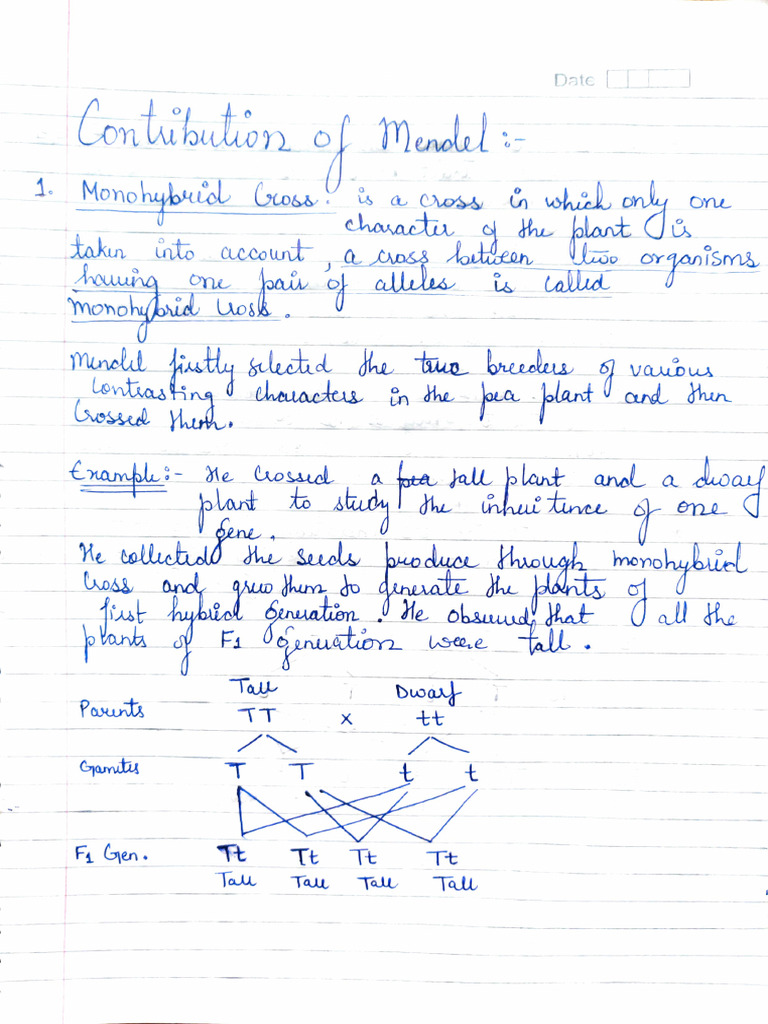 Date
Contribution of Mendel :-
1. Monohybrid Cross : is a cross in which only one
character of the plant is
taken into account, a cross between two organisms
having one pair of alleles is called
monohybrid cross.
Mendel firstly selected the true breeders of various
contrasting characters in the pea plant and then
crossed them.
Example:- He crossed a pea tall plant and a dwarf
plant to study the inheritence of one
gene.
He collected the seeds produce through monohybrid
cross and grew them to generate the plants of
first hybrid generation. He observed that all the
plants of F1 generation were tall.
Tall Dwarf
Parents TT x tt
Gametes T T t t
F1 Gen. Tt Tt Tt Tt
Tall Tall Tall Tall